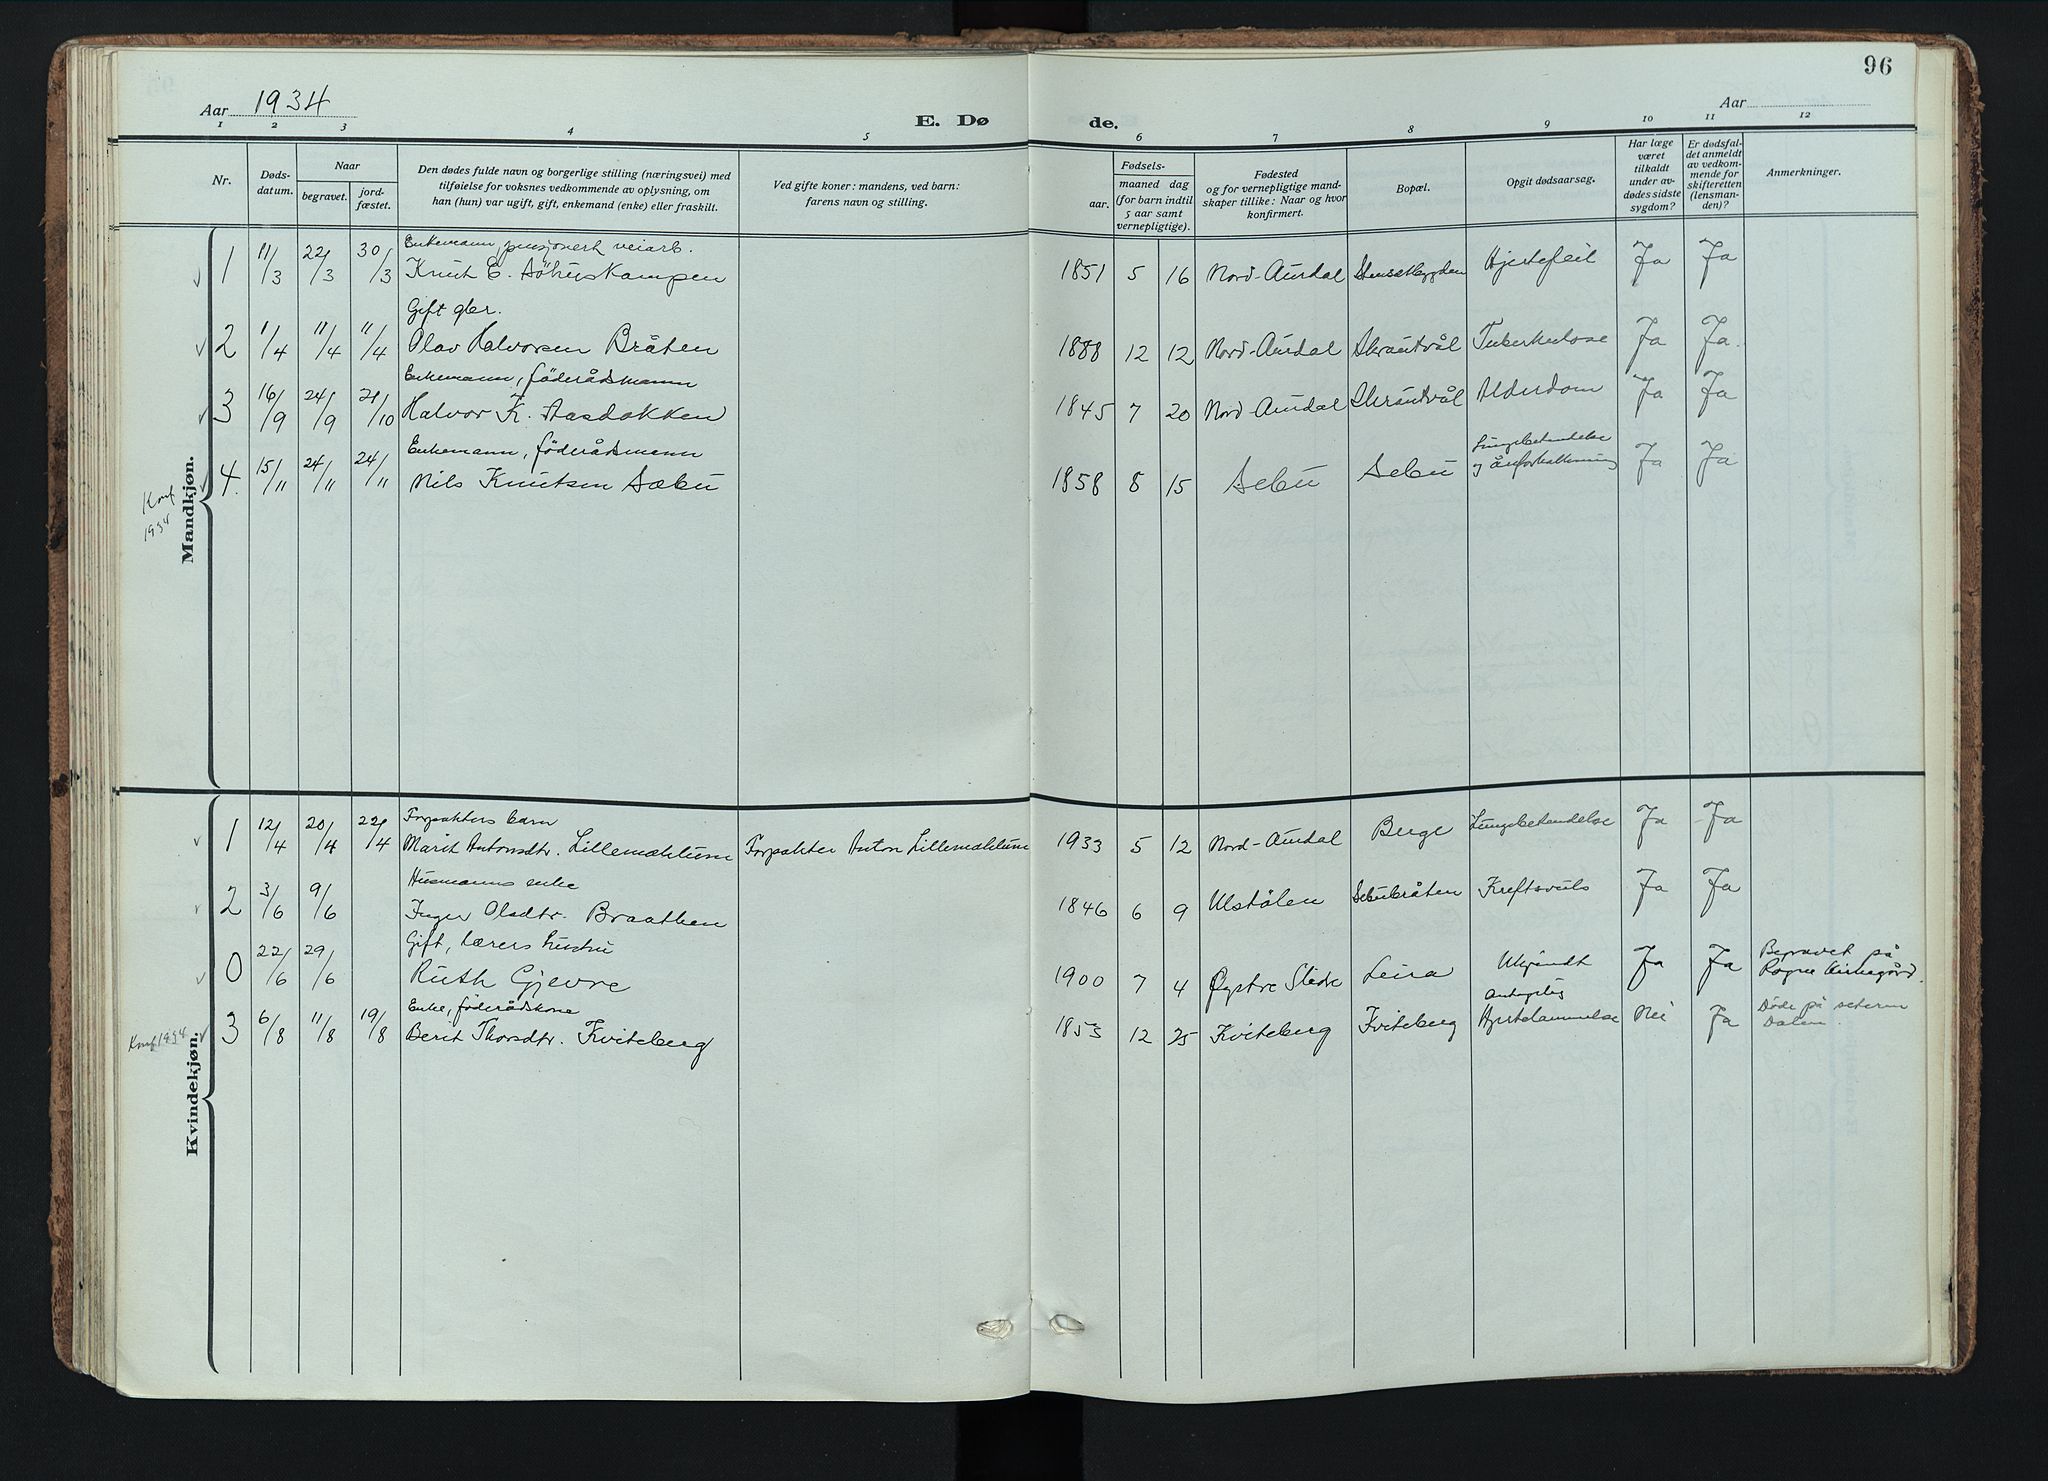 96
Aar 1934
Aar
E. Dø de.
1 2 3 4 5 6 7 8 9 10 11 12
Nr.
Døds-
datum.
Naar
begravet.
jord-
fæstet.
Den dødes fulde navn og borgerlige stilling (næringsvei) med
tilføielse for voksnes vedkommende av oplysning, om
han (hun) var ugift, gift, enkemand (enke) eller fraskilt.
Ved gifte koner: mandens, ved barn:
farens navn og stilling.
Fødsels-
aar.
maaned dag
(for barn indtil
5 aar samt
vernepligtige).
Fødested
og for vernepligtige mand-
skaper tillike: Naar og hvor
konfirmert.
Bopæl.
Opgit dødsaarsag.
Har læge
været
tilkaldt
under av-
dødes sidste
sygdom?
Er dødsfal-
det anmeldt
av vedkom-
mende for
skifteretten
(lensman-
den)?
Anmerkninger.
Mandkjøn.
Enkemann, pensjonert veiarb.
1 11/3 22/3 30/3 Knut E. 1851 5 16 Nord-Aurdal Hjertefeil Ja Ja
Gift
2 1/4 11/4 11/4 Olav Halvorsen Bråten 1888 12 12 Nord-Aurdal Skrautvål Tuberkulose Ja Ja.
Enkemann, föderådsmann
3 16/9 24/9 21/10 Halvor K. Aasdokken 1845 7 20 Nord Aurdal Skrautvål Alderdom Ja Ja
Enkemann, föderådsmann
Lungebetendelse
4. 15/11 24/11 24/11 Nils Knutsen Sæbu 1858 8 15 Sebu Sebu og Ja Ja
Konf
1934
Kvindekjøn.
Forpakters barn
1 12/4 20/4 22/4 Marit Antonsdtr. Lillemæhlum Forpakter Anton Lillemæhlum 1933 5 12 Nord-Aurdal Berge Lungebetendelse Ja Ja
Husmanns enke
2 3/6 9/6 Inger Olsdtr. Braathen 1846 6 9 Ulstölen Sebubråten Kreftsvuls Ja Ja
Gift, lærers hustru
0 22/6 29/6 Ruth Gjevre 1900 7 4 Øystre Slidre Leira Ukjendt Ja Ja Begravet på
Rogne kirkegård.
Enke, föderådskone
antagelig
3 6/8 11/8 19/8 Berit Thorsdtr. Kviteberg 1853 12 25 Kviteberg Kviteberg Hjertelammelse Nei Ja Døde på seteren
Dalen.
Konf 1934